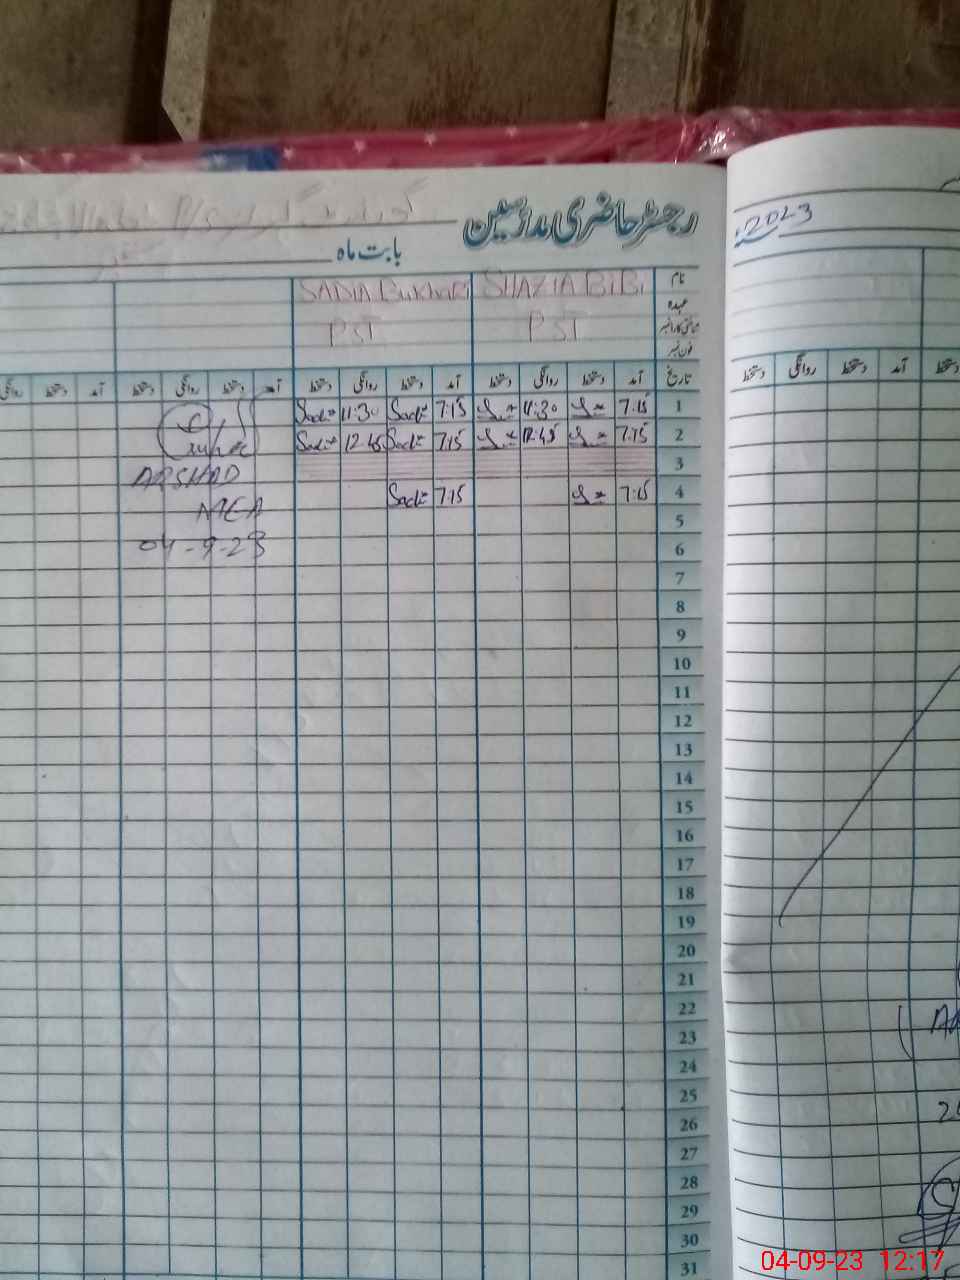 رجسٹر حاضری مدرسین
بابت ماہ
2023
نام SHAZIA BIBI SADIA Bukhari
عہدہ PST PST
فون نمبر
تاریخ آمد دستخط روانگی دستخط آمد دستخط روانگی دستخط آمد دستخط روانگی دستخط آمد دستخط روانگی
دستخط آمد دستخط روانگی دستخط
1 7:15 11:30 7:15 Sadia 11:30 Sadia
2 7:15 12:45 7:15 Sadia 12:45 Sadia
3
4 7:15 7:15 Sadia
ARSHAD
MEA
04-9-23
5
6
7
8
9
10
11
12
13
14
15
16
17
18
19
20
21
22
23
24
25
26
27
28
29
30
31
04-09-23 12:17